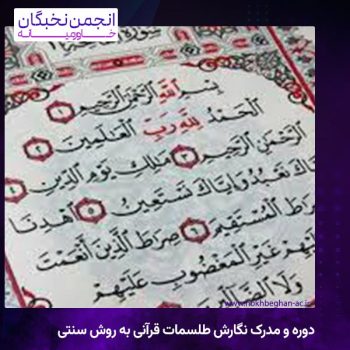 انجمن نخبگان
خاورمیانه
بِسْمِ اللَّهِ الرَّحْمَٰنِ الرَّحِيمِ ١
الْحَمْدُ لِلَّهِ رَبِّ الْعَالَمِينَ ٢
الرَّحْمَٰنِ الرَّحِيمِ ٣ مَالِكِ يَوْمِ الدِّينِ ٤
نَعْبُدُ وَإِيَّاكَ نَسْتَعِينُ ٥ اهْدِنَا
الْمُسْتَقِيمَ ٦ صِرَاطَ الَّذِينَ أَنْعَمْتَ
عَلَيْهِمْ غَيْرِ الْمَغْضُوبِ عَلَيْهِمْ
وَلَا
www.nokhbeghan-ac.ir
دوره و مدرک نگارش طلسمات قرآنی به روش سنتی